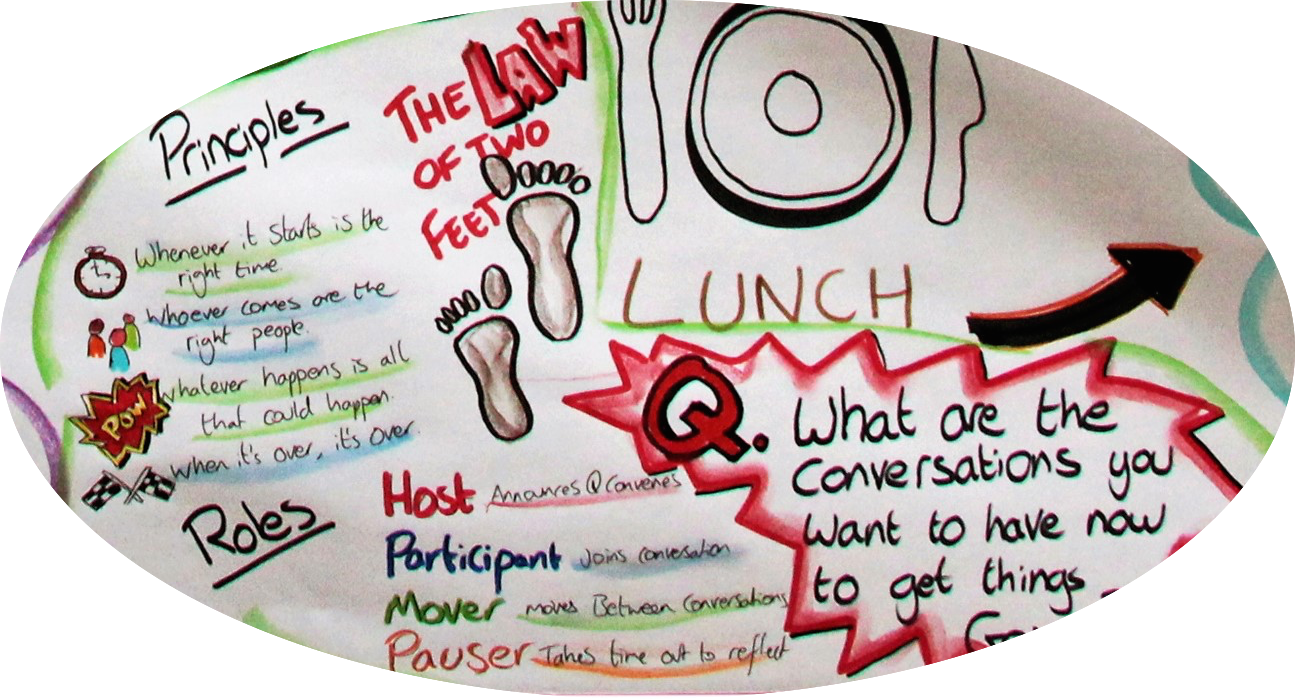 Principles
Whenever it starts is the
right time.
Whoever comes are the
right people.
whatever happens is all
that could happen.
when it's over, it's over.
POW!
THE LAW
OF TWO
FEET
LUNCH
Roles
Host Announces Q Convenes
Participant Joins conversation
Mover moves Between Conversations
Pauser Takes time out to reflect
Q. What are the
Conversations you
want to have now
to get things